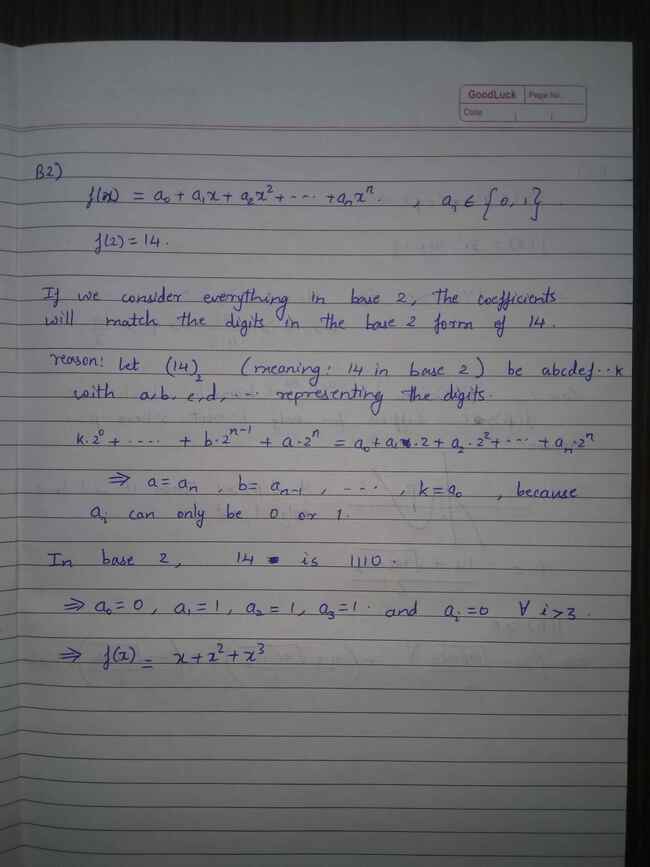 GoodLuck Page No.
Date
B2)
f(x) = a₀ + a₁x + a₂x² + ---- + aₙxⁿ. , aᵢ ∈ {0,1}
f(2) = 14.
If we consider everything in base 2, the coefficients
will match the digits in the base 2 form of 14.
reason: Let (14)₂ (meaning: 14 in base 2) be abcdef..k
with a,b,c,d,.... representing the digits.
k·2⁰ + ..... + b·2ⁿ⁻¹ + a·2ⁿ = a₀ + a₁·2 + a₂·2² + .... + aₙ·2ⁿ
⇒ a = aₙ , b = aₙ₋₁ , ...., k = a₀ , because
aᵢ can only be 0 or 1.
In base 2, 14 is 1110.
⇒ a₀ = 0, a₁ = 1, a₂ = 1, a₃ = 1. and aᵢ = 0 ∀ i > 3.
⇒ f(x) = x + x² + x³